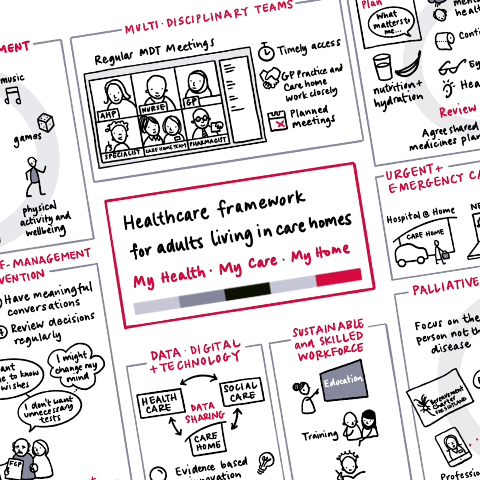 MULTI-DISCIPLINARY TEAMS
Regular MDT Meetings
AHP
NURSE
GP
SPECIALIST
CARE HOME TEAM
PHARMACIST
Timely access
GP Practice and
Care home
work closely
Planned
meetings
music
games
physical
activity and
wellbeing
Plan
What
matters to
me...
nutrition +
hydration
Review
Agree shared
medicines plan
Healthcare framework
for adults living in care homes
My Health · My Care · My Home
URGENT +
EMERGENCY
Hospital @ Home
CARE HOME
F-MANAGEMENT
Have meaningful
conversations
Review decisions
regularly
I might
change my
mind
I don't want
unnecessary
tests
to know
wishes
FCP
DATA · DIGITAL
+ TECHNOLOGY
HEALTH
CARE
SOCIAL
CARE
DATA
SHARING
CARE
HOME
Evidence based
SUSTAINABLE
and SKILLED
WORKFORCE
Education
Training
PALLIATIVE
Focus on the
person not the
disease
Bereavement
Charter
FOR SCOTLAND